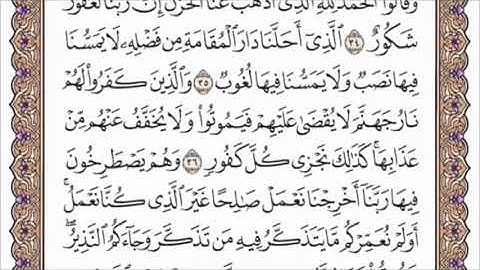 وَقَالُوا۟ ٱلْحَمْدُ لِلَّهِ ٱلَّذِىٓ أَذْهَبَ عَنَّا ٱلْحَزَنَ إِنَّ رَبَّنَا لَغَفُورٌ
شَكُورٌ ٣٤ ٱلَّذِىٓ أَحَلَّنَا دَارَ ٱلْمُقَامَةِ مِن فَضْلِهِۦ لَا يَمَسُّنَا
فِيهَا نَصَبٌ وَلَا يَمَسُّنَا فِيهَا لُغُوبٌ ٣٥ وَٱلَّذِينَ كَفَرُوا۟ لَهُمْ
نَارُ جَهَنَّمَ لَا يُقْضَىٰ عَلَيْهِمْ فَيَمُوتُوا۟ وَلَا يُخَفَّفُ عَنْهُم مِّنْ
عَذَابِهَا ۚ كَذَٰلِكَ نَجْزِى كُلَّ كَفُورٍ ٣٦ وَهُمْ يَصْطَرِخُونَ
فِيهَا رَبَّنَآ أَخْرِجْنَا نَعْمَلْ صَٰلِحًا غَيْرَ ٱلَّذِى كُنَّا نَعْمَلُ ۚ
أَوَلَمْ نُعَمِّرْكُم مَّا يَتَذَكَّرُ فِيهِ مَن تَذَكَّرَ وَجَآءَكُمُ ٱلنَّذِيرُ ۖ